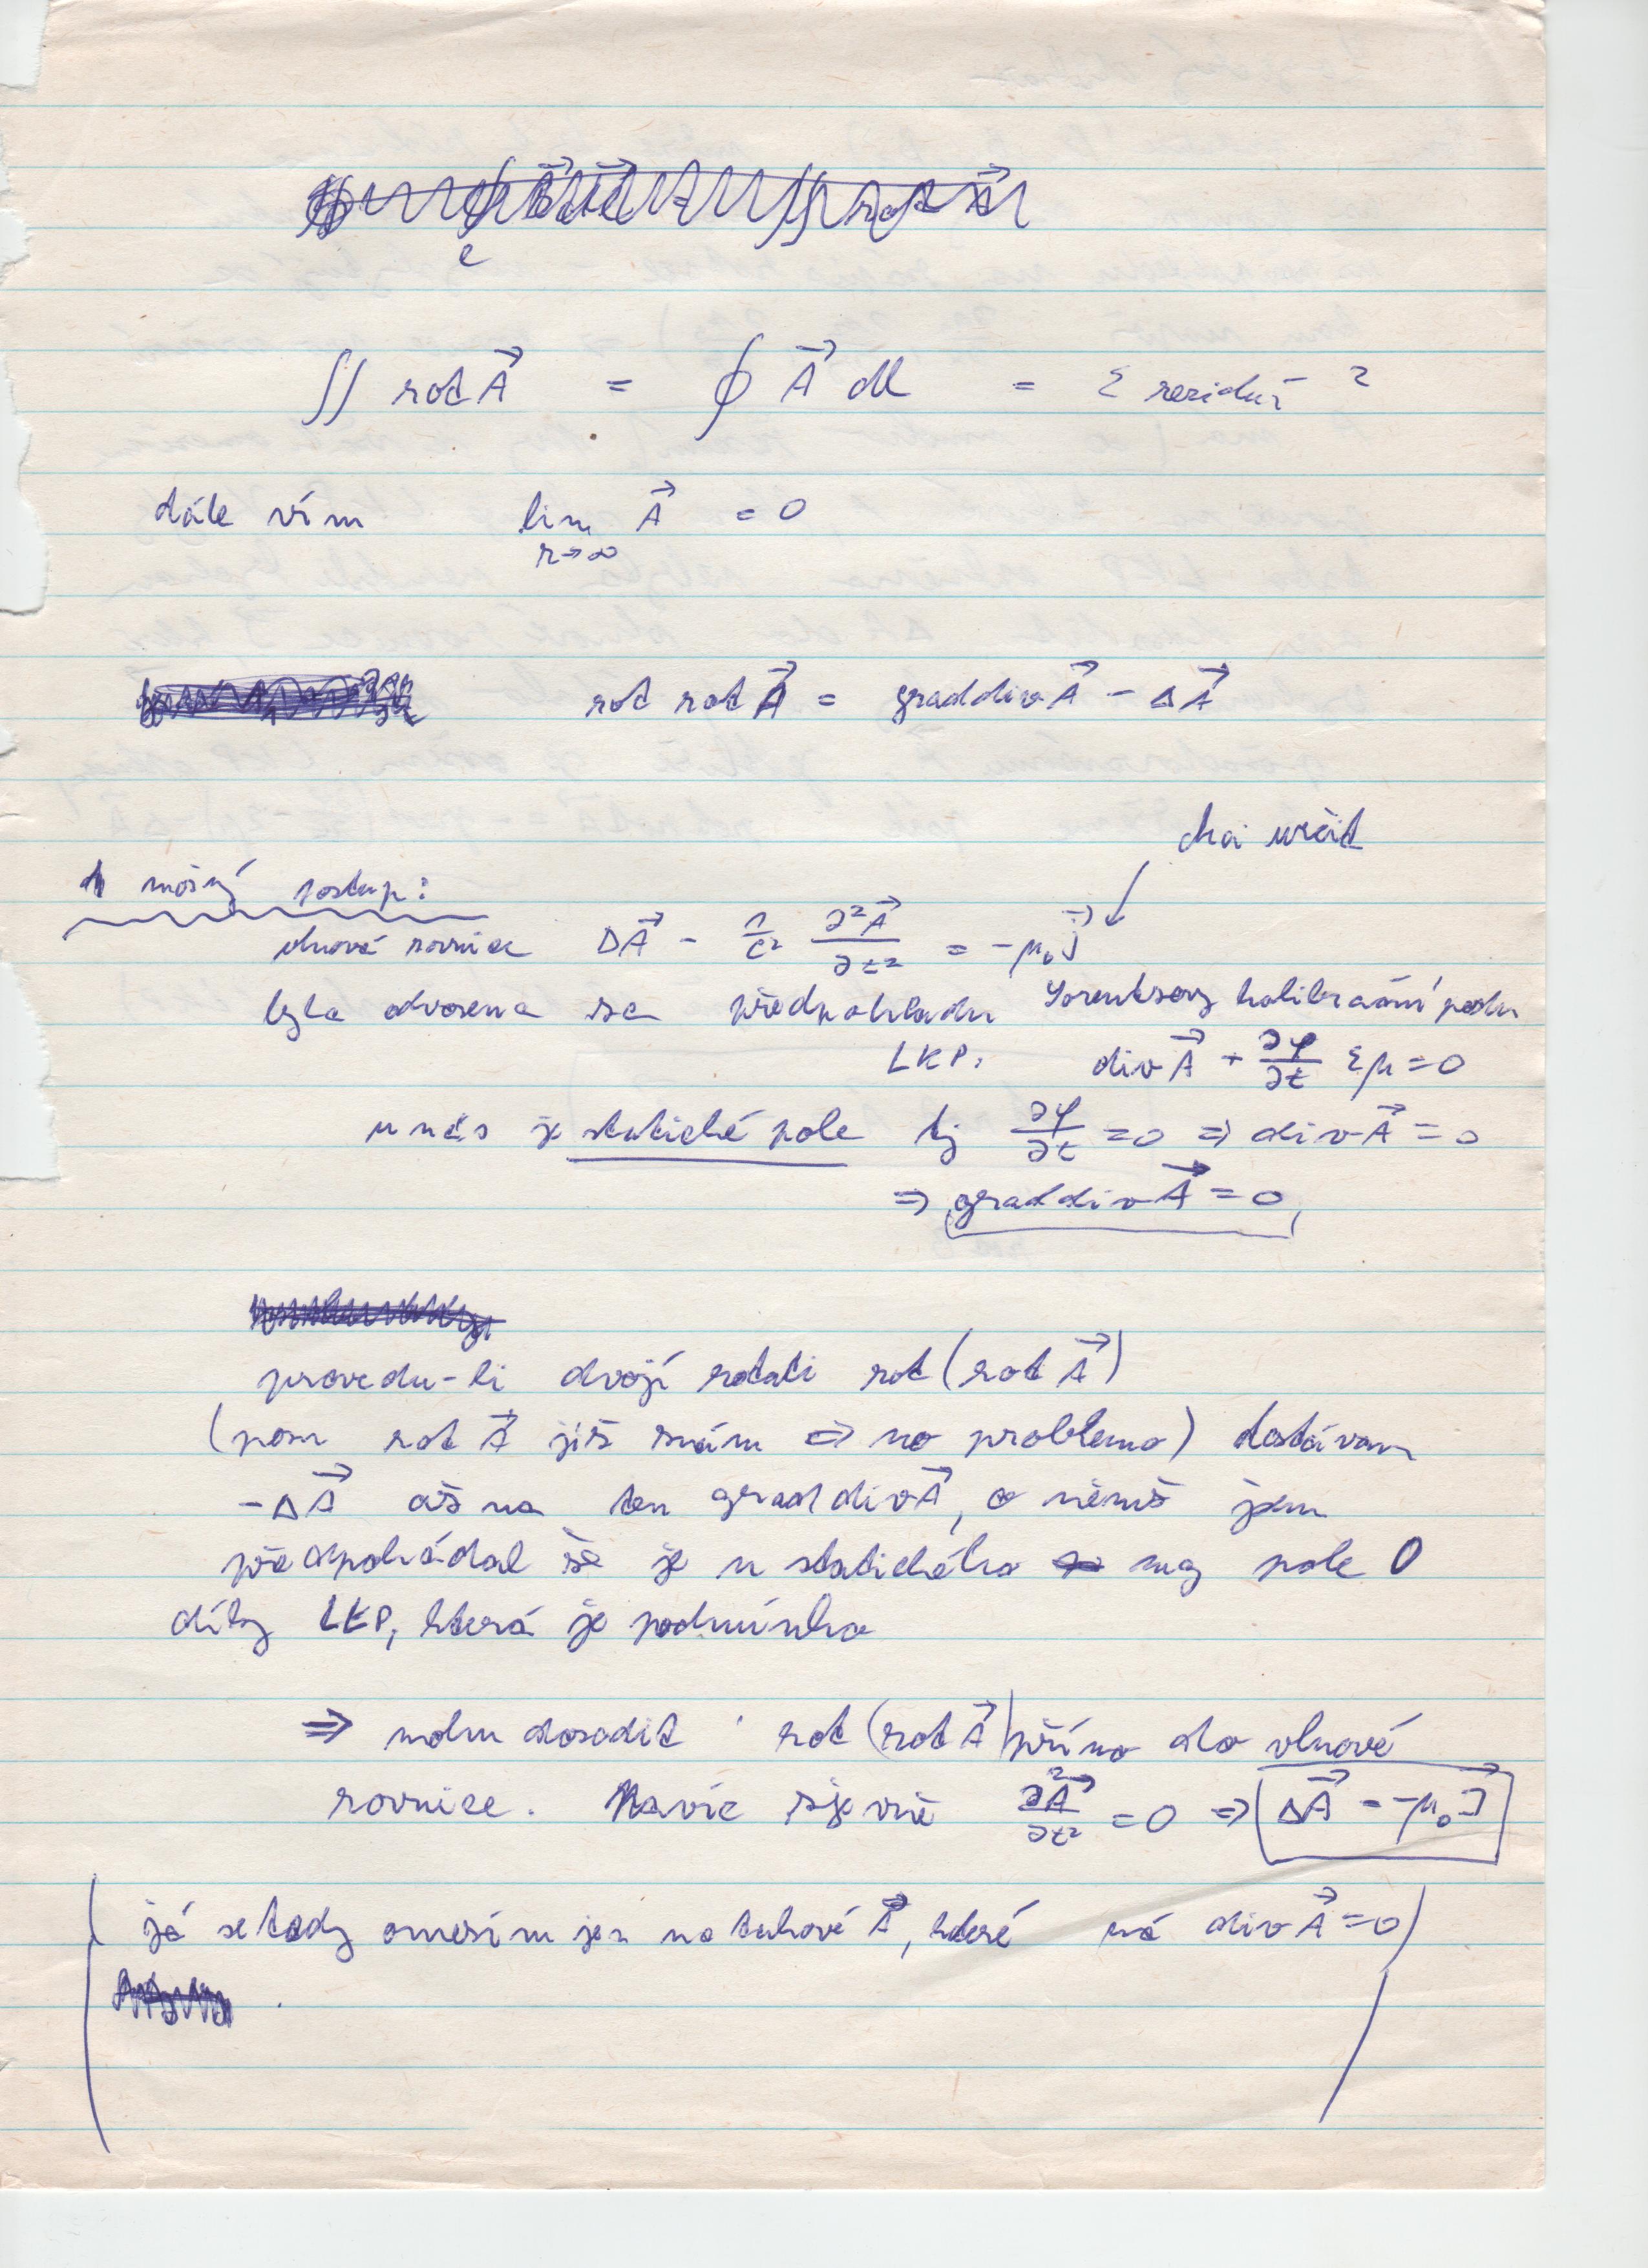 ∬ rot A⃗ = ∮ A⃗ dl = Σ reziduí ?
dále vím lim A⃗ = 0
r→∞
rot rot A⃗ = grad div A⃗ − ΔA⃗
chci určit
1 možný postup:
vlnová rovnice ΔA⃗ − 1/c² ∂²A⃗/∂t² = −μ₀J⃗
byla odvozena za předpokladu Lorentzovy kalibrační podm
LKP: div A⃗ + ∂φ/∂t εμ = 0
u nás je statické pole tj ∂φ/∂t = 0 ⇒ div A⃗ = 0
⇒ grad div A⃗ = 0
provedu-li dvojí rotaci rot (rot A⃗)
(pozn rot A⃗ již znám ⇒ no problemo) dostávam
−ΔA⃗ až na ten grad div A⃗, o němž jsem
předpokládal že je u statického mg pole 0
díky LKP, která je podmínka
⇒ mohu dosadit rot (rot A⃗) přímo do vlnové
rovnice. Navíc zjevně ∂²A⃗/∂t² = 0 ⇒ ΔA⃗ = −μ₀J⃗
(já se tedy omezím jen na takové A⃗, které má div A⃗ = 0)